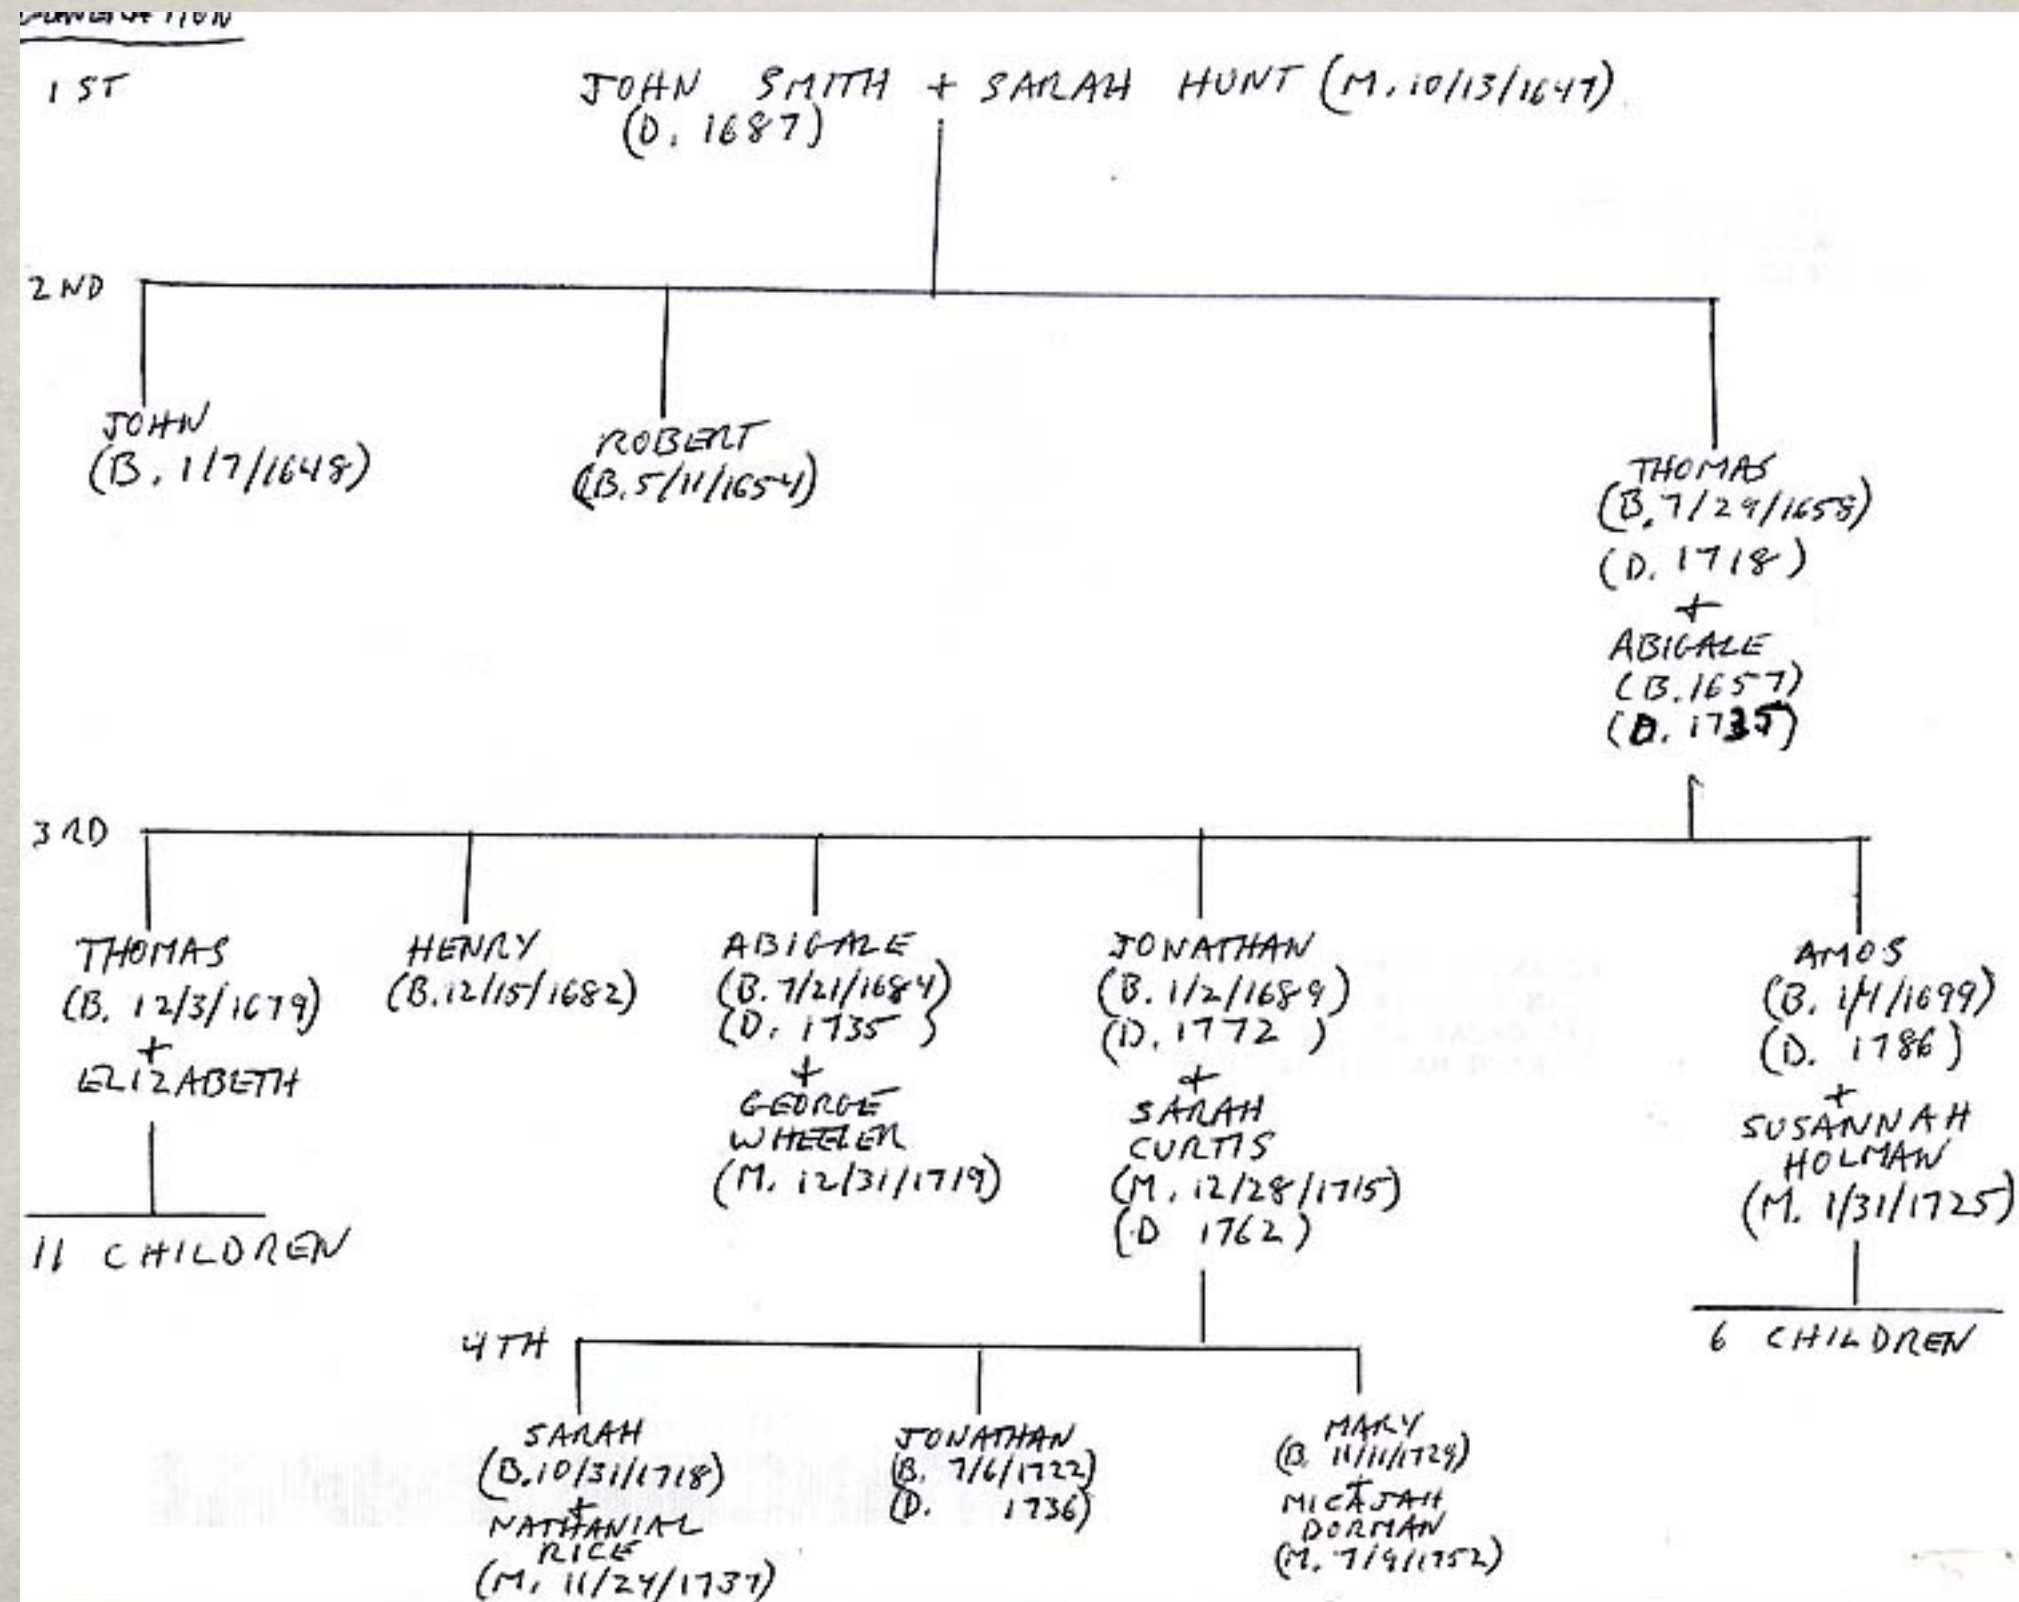 GENERATION
1ST
JOHN SMITH + SARAH HUNT (M. 10/13/1647)
(D. 1687)
2ND
JOHN
(B. 1/7/1648)
ROBERT
(B. 5/11/1654)
THOMAS
(B. 7/29/1658)
(D. 1718)
+
ABIGALE
(B. 1657)
(D. 1735)
3RD
THOMAS
(B. 12/3/1679)
+
ELIZABETH
11 CHILDREN
HENRY
(B. 12/15/1682)
ABIGALE
(B. 7/21/1684)
(D. 1735)
+
GEORGE
WHEELER
(M. 12/31/1719)
JONATHAN
(B. 1/2/1689)
(D. 1772)
+
SARAH
CURTIS
(M. 12/28/1715)
(D 1762)
AMOS
(B. 1/4/1699)
(D. 1786)
+
SUSANNAH
HOLMAN
(M. 1/31/1725)
6 CHILDREN
4TH
SARAH
(B. 10/31/1718)
+
NATHANIAL
RICE
(M. 11/24/1737)
JONATHAN
(B. 7/6/1722)
(D. 1736)
MARY
(B. 11/11/1729)
+
MICAJAH
DORMAN
(M. 7/9/1752)